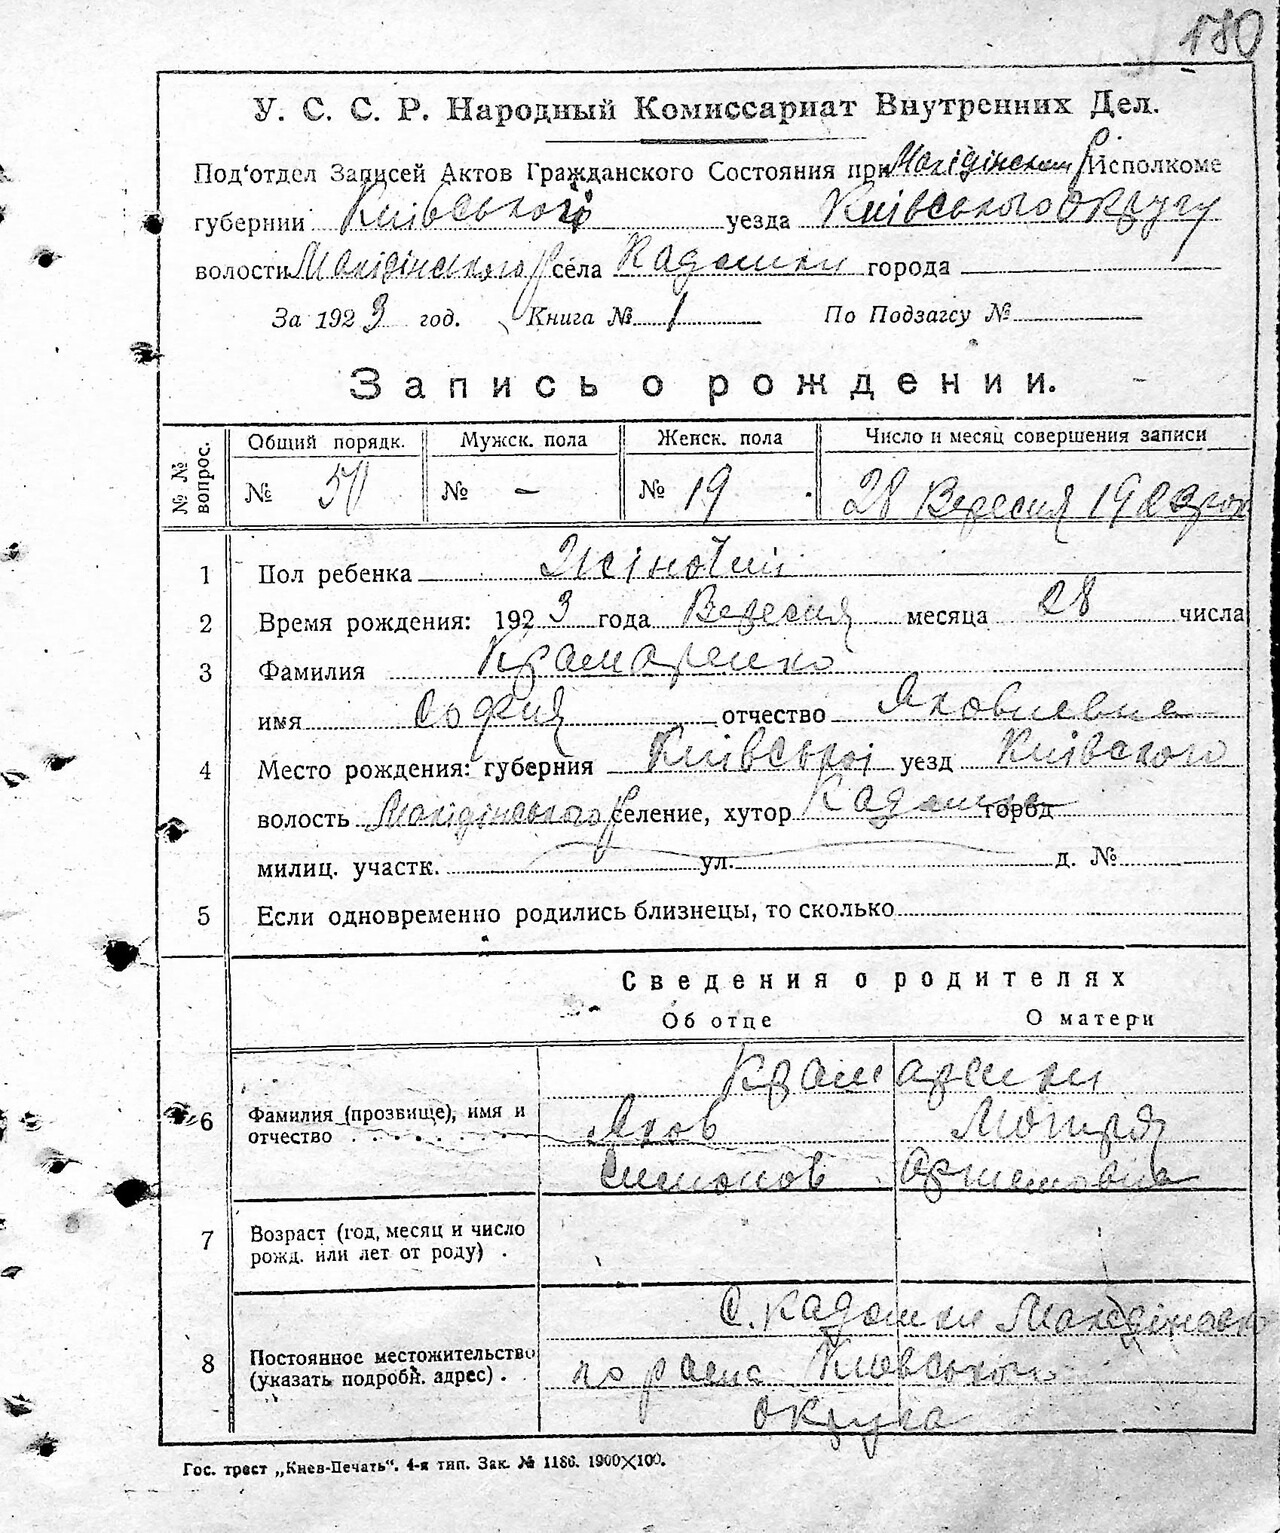 180
У. С. С. Р. Народный Комиссариат Внутренних Дел.
Под‘отдел Записей Актов Гражданского Состояния при Исполкоме
губернии Київської уезда Київського Округу
волости села Кадомки города
За 1923 год. Книга № 1 По Подзагсу №
Запись о рождении.
№ № вопрос. Общий порядк. Мужск. пола Женск. пола Число и месяц совершения записи
№ 50 № - № 19 28 Вересня 1923 рок
1 Пол ребенка Жіночий
2 Время рождения: 1923 года Вересня месяца 28 числа
3 Фамилия Крамаренко
имя София отчество Яковлевна
4 Место рождения: губерния Київськоі уезд Київского
волость селение, хутор Кадомка город
милиц. участк. ул. д. №
5 Если одновременно родились близнецы, то сколько
Сведения о родителях
Об отце О матери
Крамаренки
6 Фамилия (прозвище), имя и отчество . . . . . . . Яков Мотря
Симонов
7 Возраст (год, месяц и число рожд. или лет от роду) .
С. Кадомки
8 Постоянное местожительство (указать подробн. адрес) . го района Киівського
округа
Гос. трест „Киев-Печать“. 4-я тип. Зак. № 1186. 1900×100.